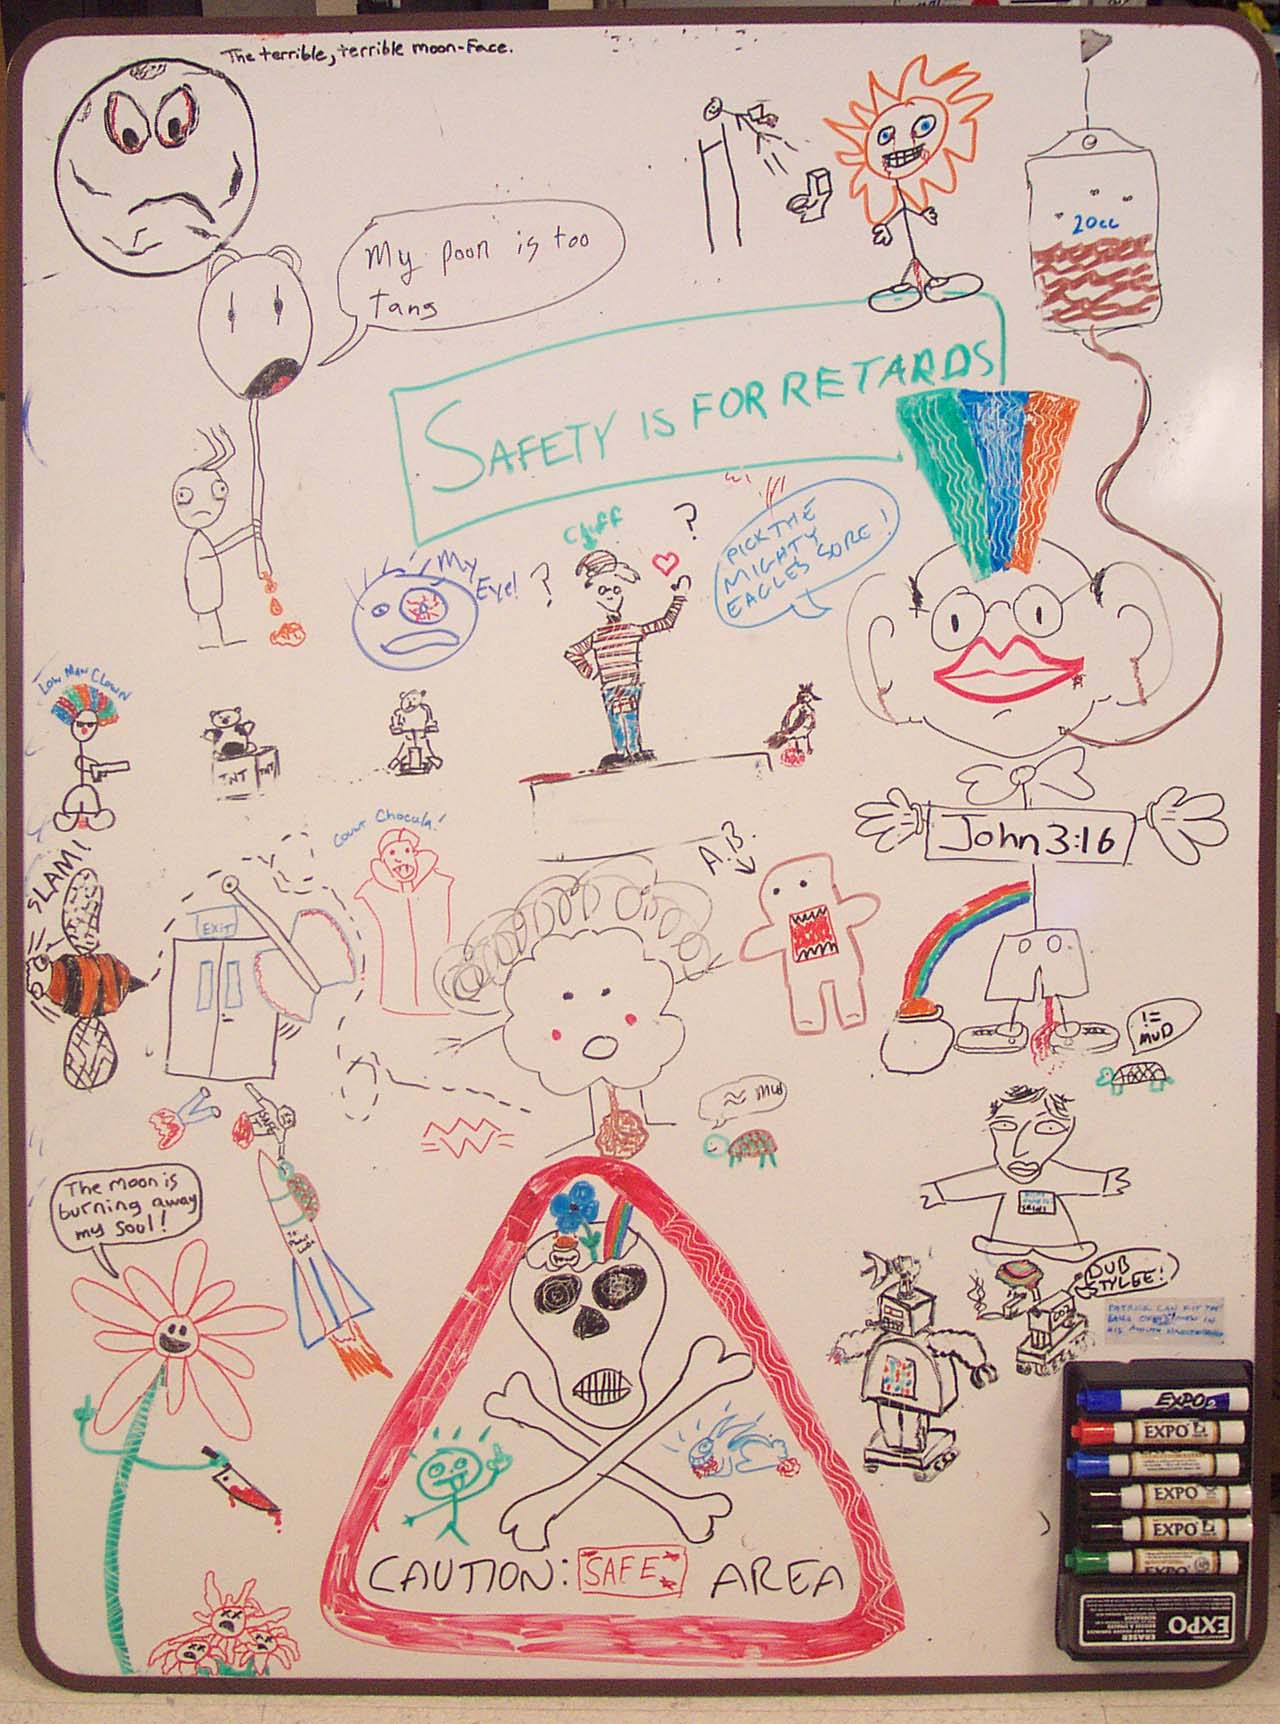 The terrible, terrible moon-Face.
My poon is too
tang
20cc
SAFETY IS FOR RETARDS
Cliff
?
?
PICK THE
MIGHTY
EAGLE'S SORE!
My
Eye!
LOW MAN CLOWN
TNT
TNT
Count Chocula!
A.B.
John 3:16
SLAM!
EXIT
!=
MUD
≈ MUD
The moon is
burning away
my soul!
DUB
STYLEE!
PATRICK CAN FIT THE
IN
HIS MOUTH
CAUTION: "SAFE" AREA
EXPO2
EXPO
EXPO
EXPO
EXPO
EXPO
EXPO